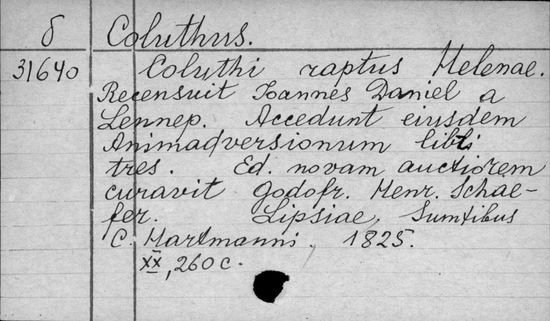 б Coluthus.
31640 Coluthi raptus Helenae.
Recensuit Ioannes Daniel a
Lennep. Accedunt eiusdem
Animadversionum libri
tres. Ed. novam auctiorem
curavit Godofr. Henr. Schae-
fer. Lipsiae, Sumtibus
C. Hartmanni, 1825.
XX, 260 c.